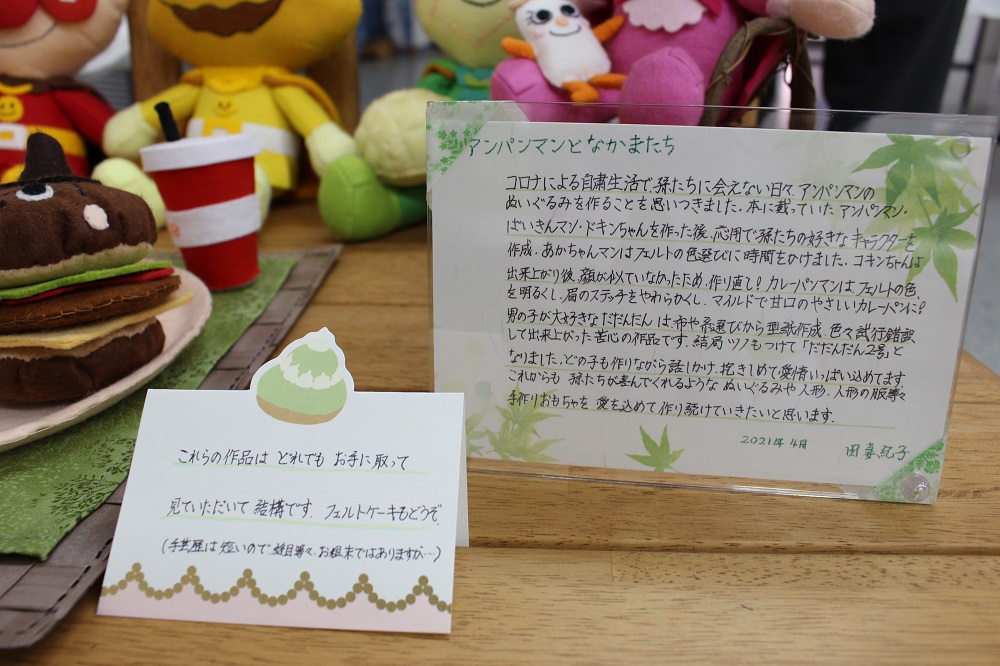 アンパンマンとなかまたち
コロナによる自粛生活で孫たちに会えない日々、アンパンマンの
ぬいぐるみを作ることを思いつきました。本に載っていた アンパンマン・
ばいきんマン・ドキンちゃんを作った後、応用で孫たちの好きなキャラクターを
作成。あかちゃんマンはフェルトの色選びに時間をかけました。コキンちゃんは
出来上がり後、顔が似ていなかったため、作り直し! カレーパンマンはフェルトの色
を明るくし、眉のステッチをやわらかくし、マイルドで甘口のやさしいカレーパンに!
男の子が大好きなだだんだんは、布や糸選びから型紙作成、色々試行錯誤
して出来上がった苦心の作品です。結局ツノもつけて「だだんだん2号」と
なりました。どの子も作りながら話しかけ、抱きしめて愛情いっぱい込めてます
これからも 孫たちが喜んでくれるような ぬいぐるみや人形、人形の服等々
手作りおもちゃを 愛を込めて作り続けていきたいと思います。
2021年4月
田 喜紀子
これらの作品は どれでも お手に取って
見ていただいて 結構です。フェルトケーキもどうぞ
(手芸歴は短いので、縫目等々、お粗末ではありますが…)